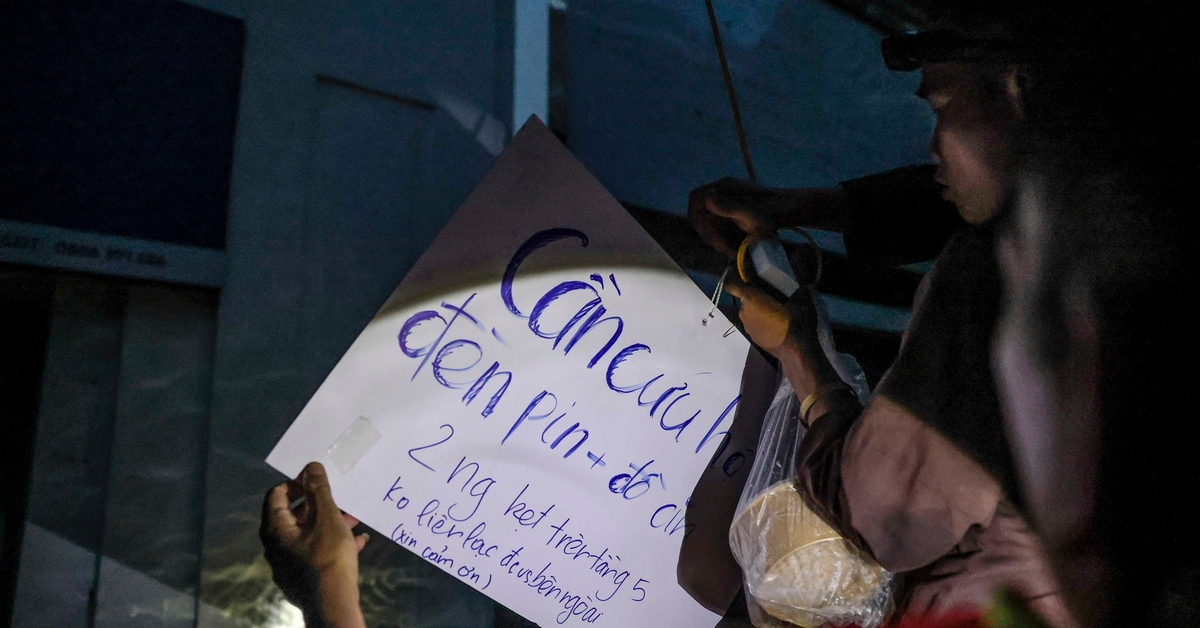 Cần cứu hộ
đèn pin + đồ ăn
2 ng kẹt trên tầng 5
ko liên lạc đc vs bên ngoài
(xin cảm ơn)